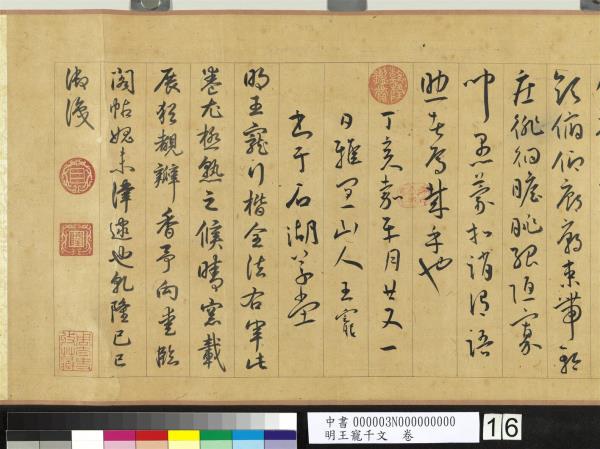 領俯仰廊廟束帶矜
莊徘徊瞻眺孤陋寡
聞愚蒙等誚謂語
助者焉哉乎也
丁亥嘉平月廿又一
日雅宜山人王寵
書于石湖草堂
明王寵行楷全法右軍此
卷尤極熟之候晴窓載
展猶覯瓣香予向臨
閣帖媿未津逮也乾隆己巳
御識
中書 000003N000000000
明王寵千文 卷
16